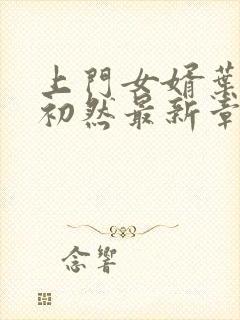 上門女婿葉
初然最新章
念響